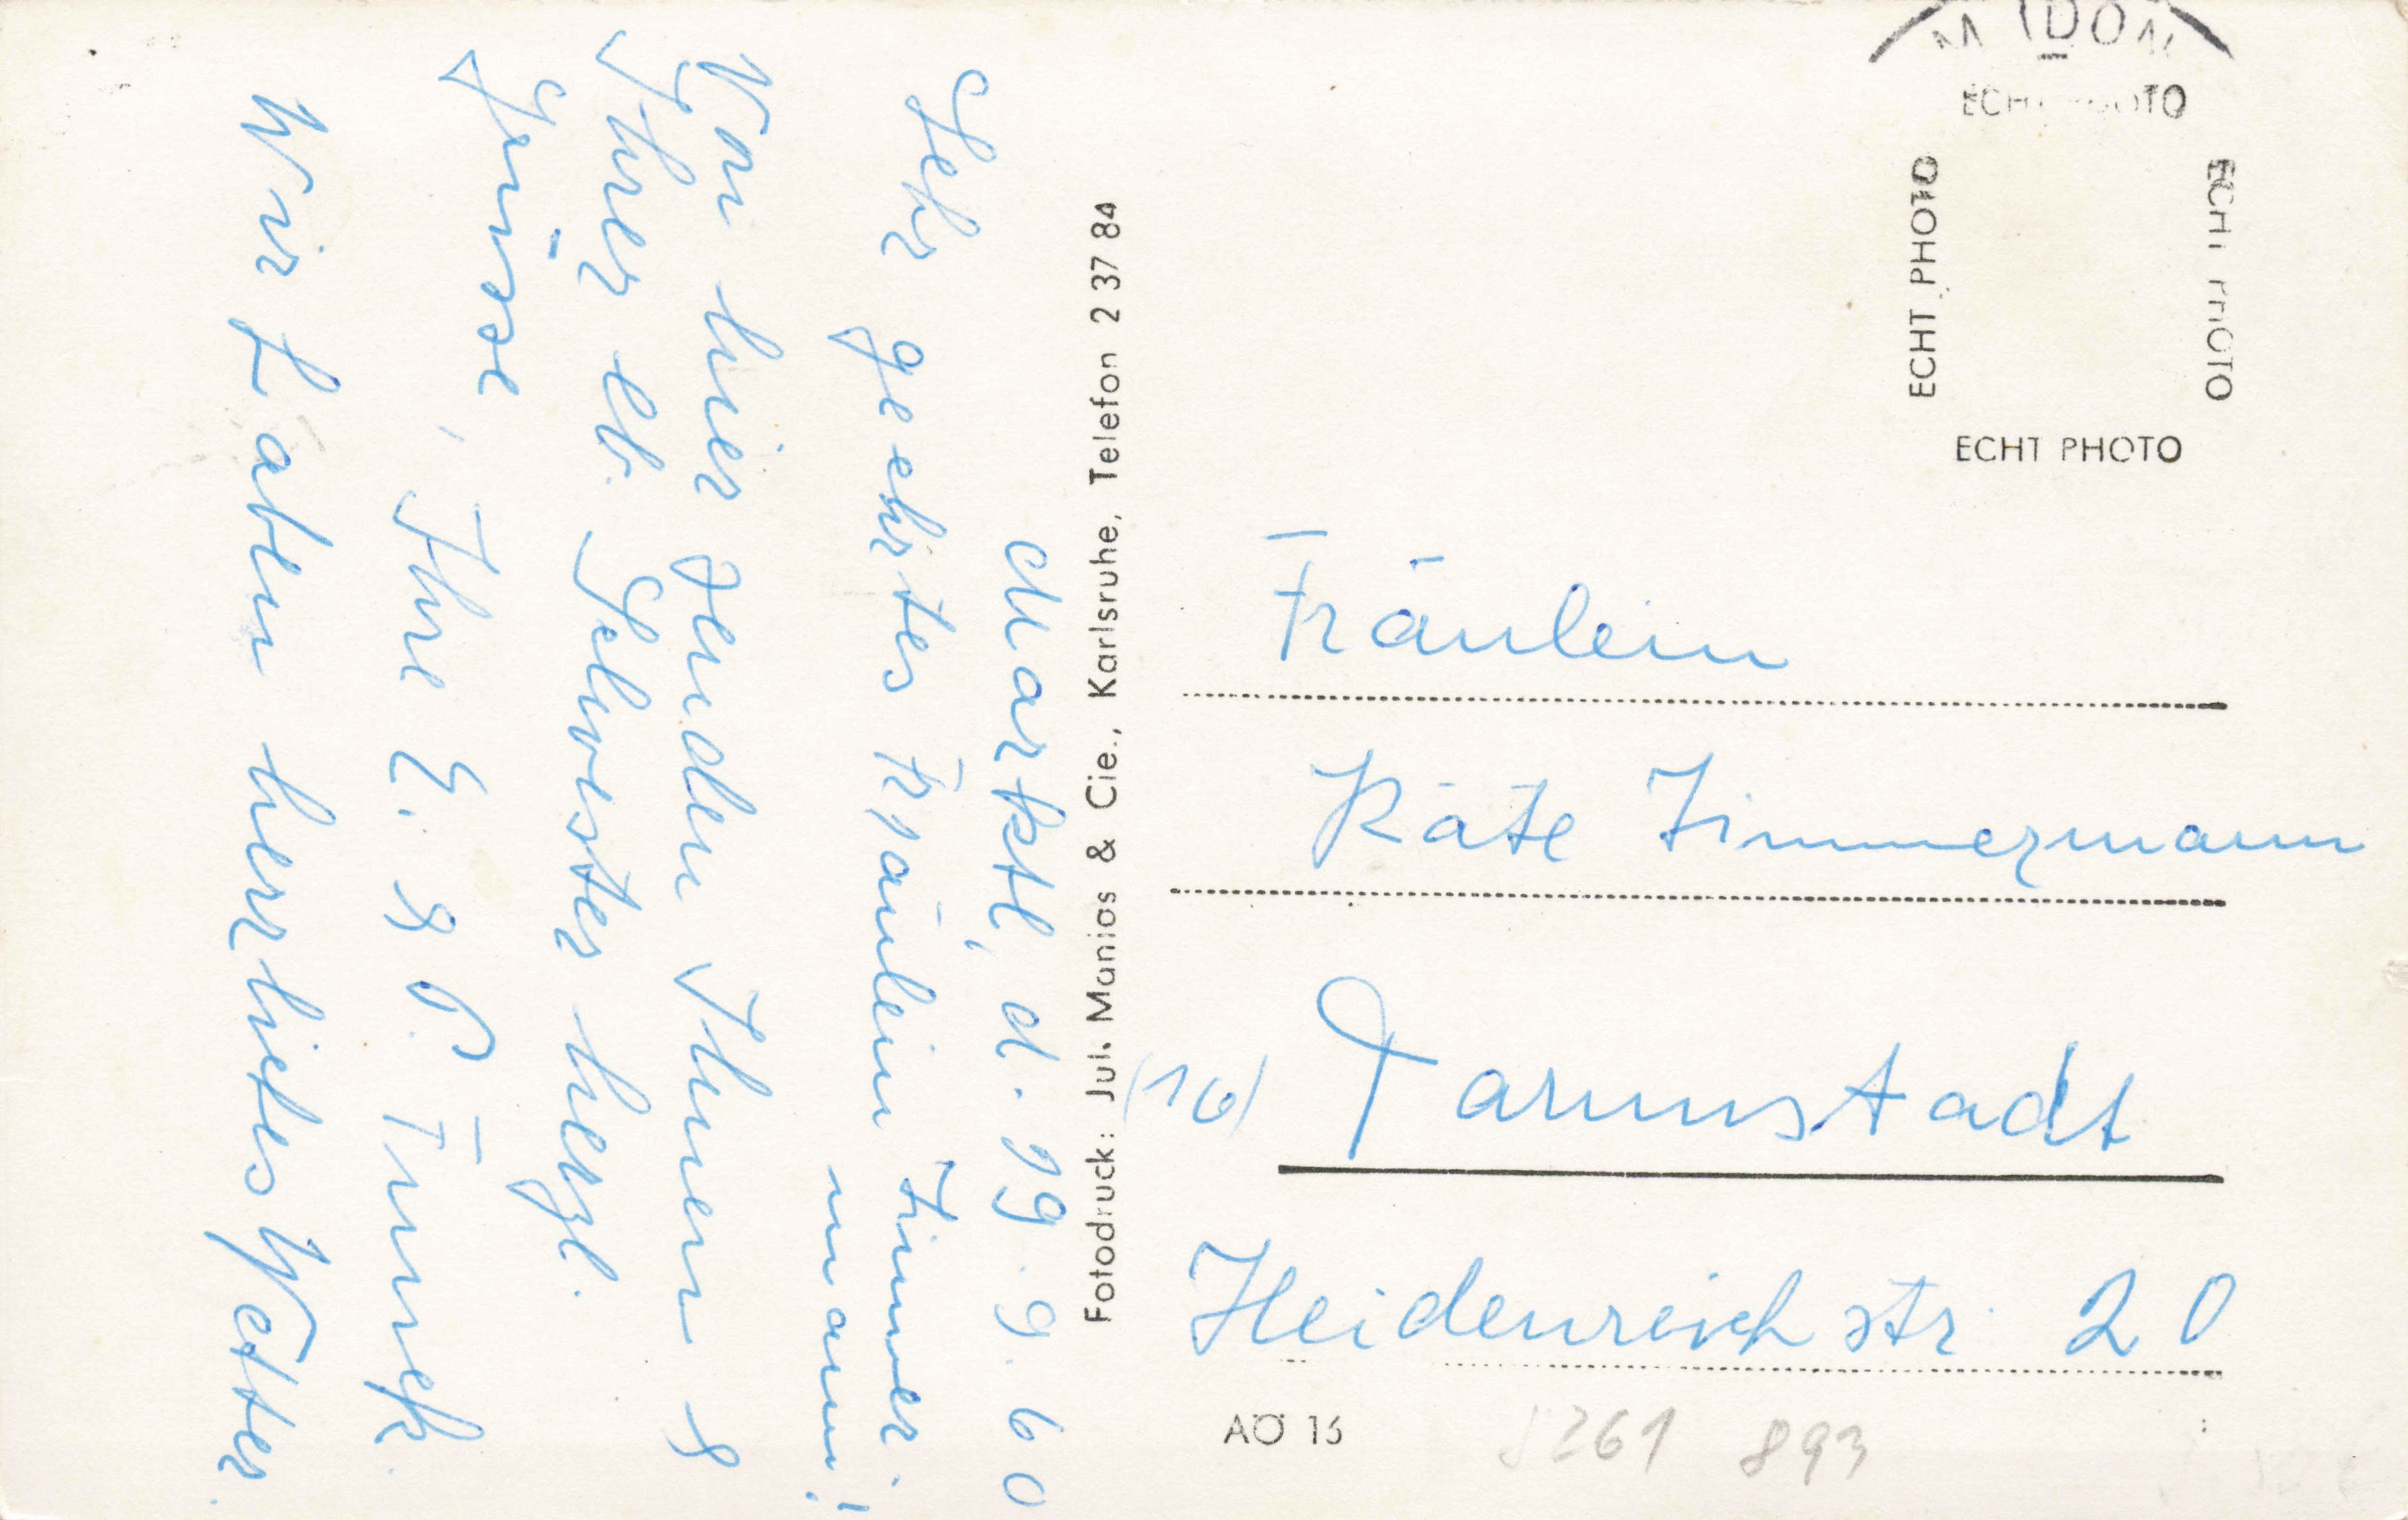 Marktl, d. 19.9.60
Sehr geehrtes Fräulein Zimmer-
mann!
Von hier senden Ihnen &
Ihrer lb. Schwester herzl.
Grüsse,
Ihre E. & P. Funek.
Wir haben herrliches Wetter.
Fotodruck: Jul. Manias & Cie., Karlsruhe, Telefon 2 37 84
ECHT PHOTO
ECHT PHOTO
ECHT PHOTO
ECHT PHOTO
Fräulein
Käte Zimmermann
(16) Darmstadt
Heidenreichstr. 20
AÖ 15
893